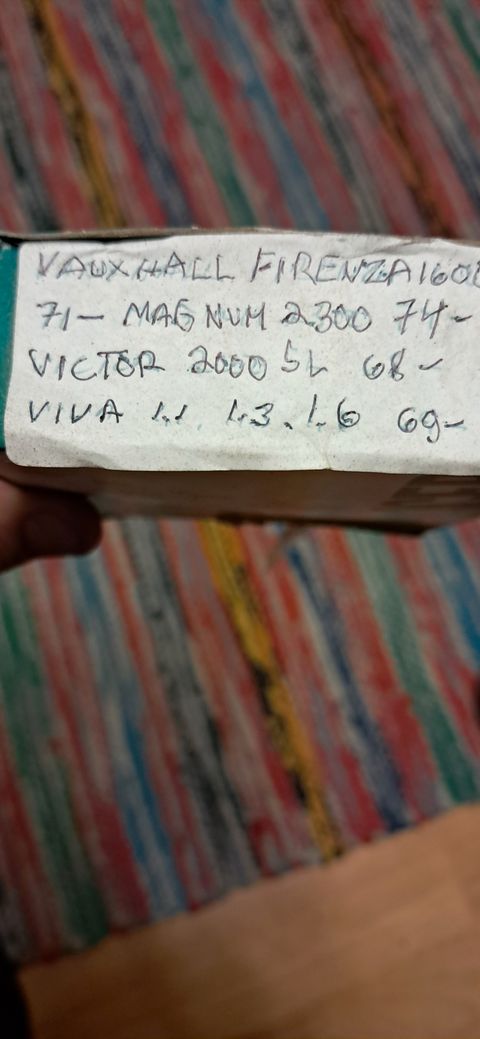 VAUXHALL FIRENZA 1600
71- MAGNUM 2300 74-
VICTOR 2000 SL 68-
VIVA 1.1. 1.3. 1.6 69-